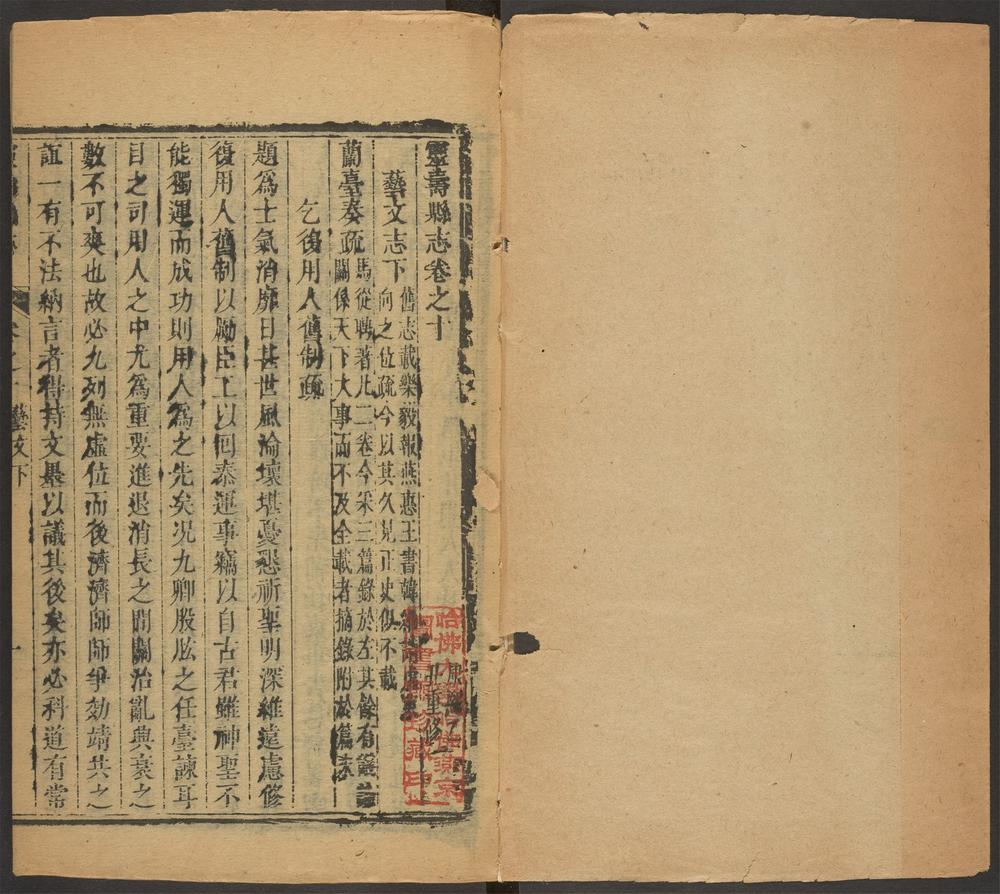 靈壽縣志卷之十
康熙
重修
藝文志下
舊志載樂毅報燕惠王書韓
向之位疏今以其久見正史似不載
蘭臺奏疏
馬從聘著凡二卷今采三篇錄於左其餘有議論
關係天下大事而不及全載者摘錄附於篇末
乞復用人舊制疏
題為士氣消靡日甚世風淪壞堪憂懇祈聖明深維遠慮修
復用人舊制以勵臣工以囘泰運事竊以自古君雖神聖不
能獨運而成功則用人為之先矣況九卿股肱之任臺諫耳
目之司用人之中尤為重要進退消長之間關治亂興衰之
數不可爽也故必九列無虛位而後濟濟師師爭効靖共之
誼一有不法納言者得持文墨以議其後矣亦必科道有常
藝文下
一